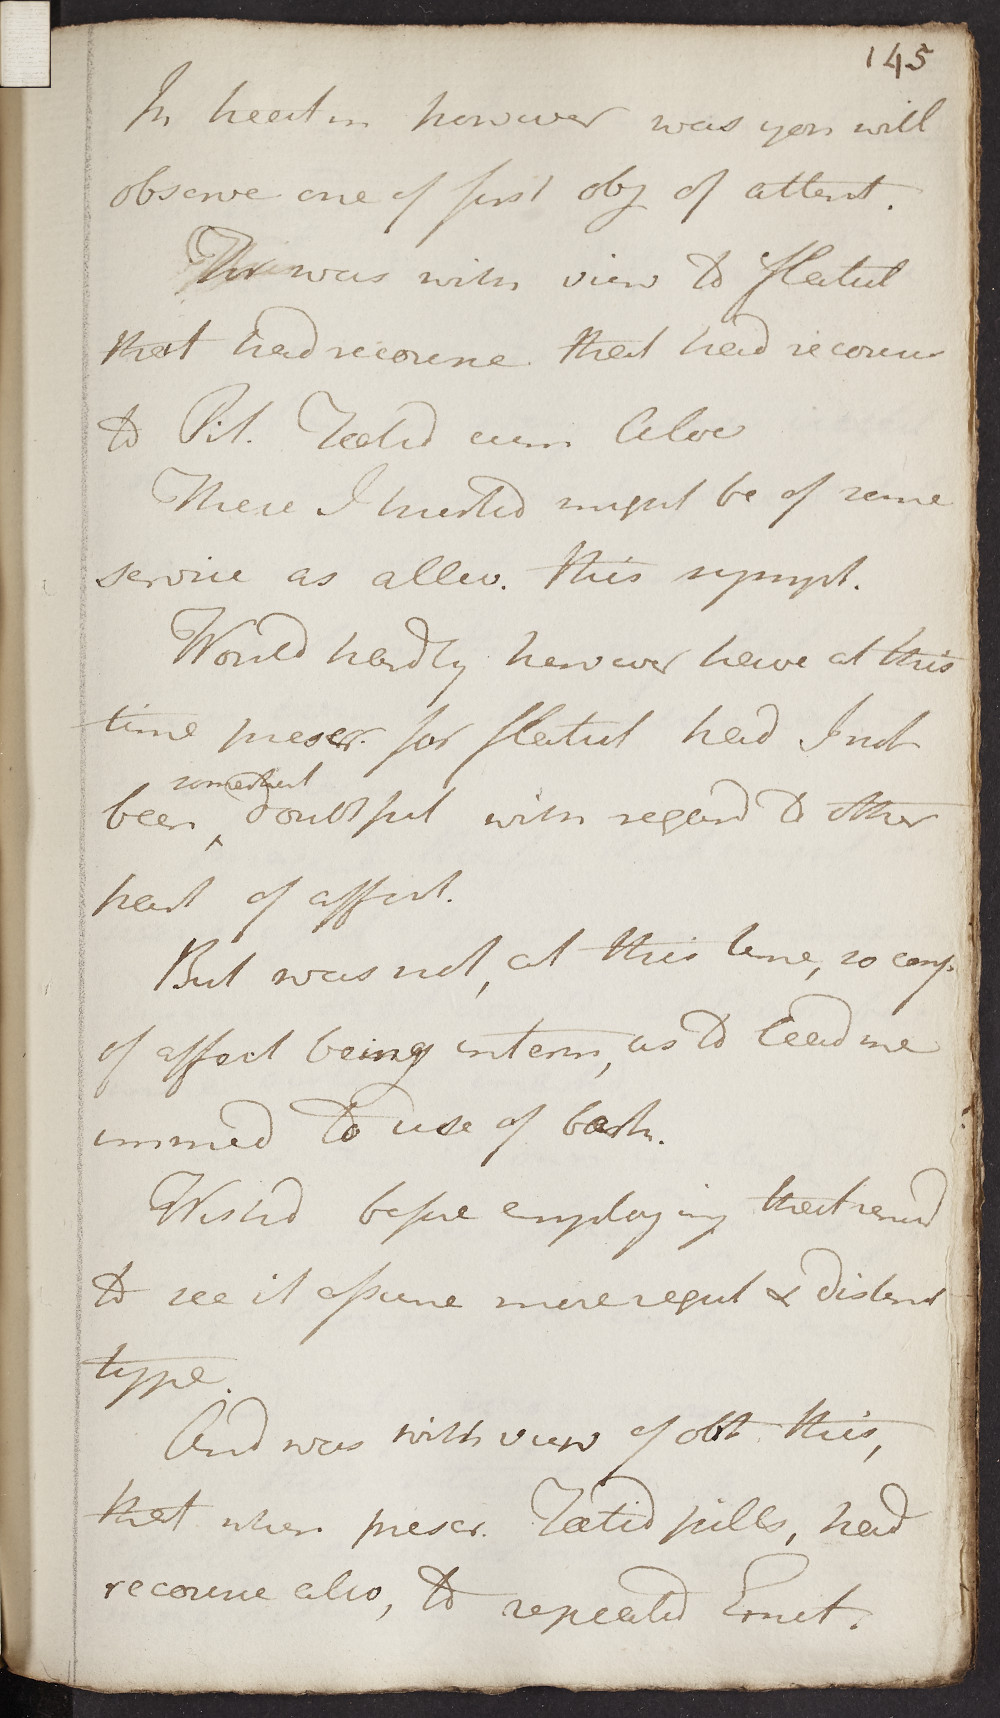 145
In treatm however was you will
observe one of first obj of attent.
This was with view to flatul
that had recourse that had recourse
to Pil. Foetid cum Aloe
These I trusted might be of some
service as allev. this sympt.
Would hardly however have at this
time prescr. for flatul had I not
been somewhat doubtful with regard to other
part of affect.
But was not, at this time, so conf.
of affect being interm, as to lead me
immed to use of bark.
Wishd before employing that remed
to see it assume more regul & distinct
type.
And was with view of obt this,
that when prescr. Foetid pills, had
recourse also, to repeated Emet.